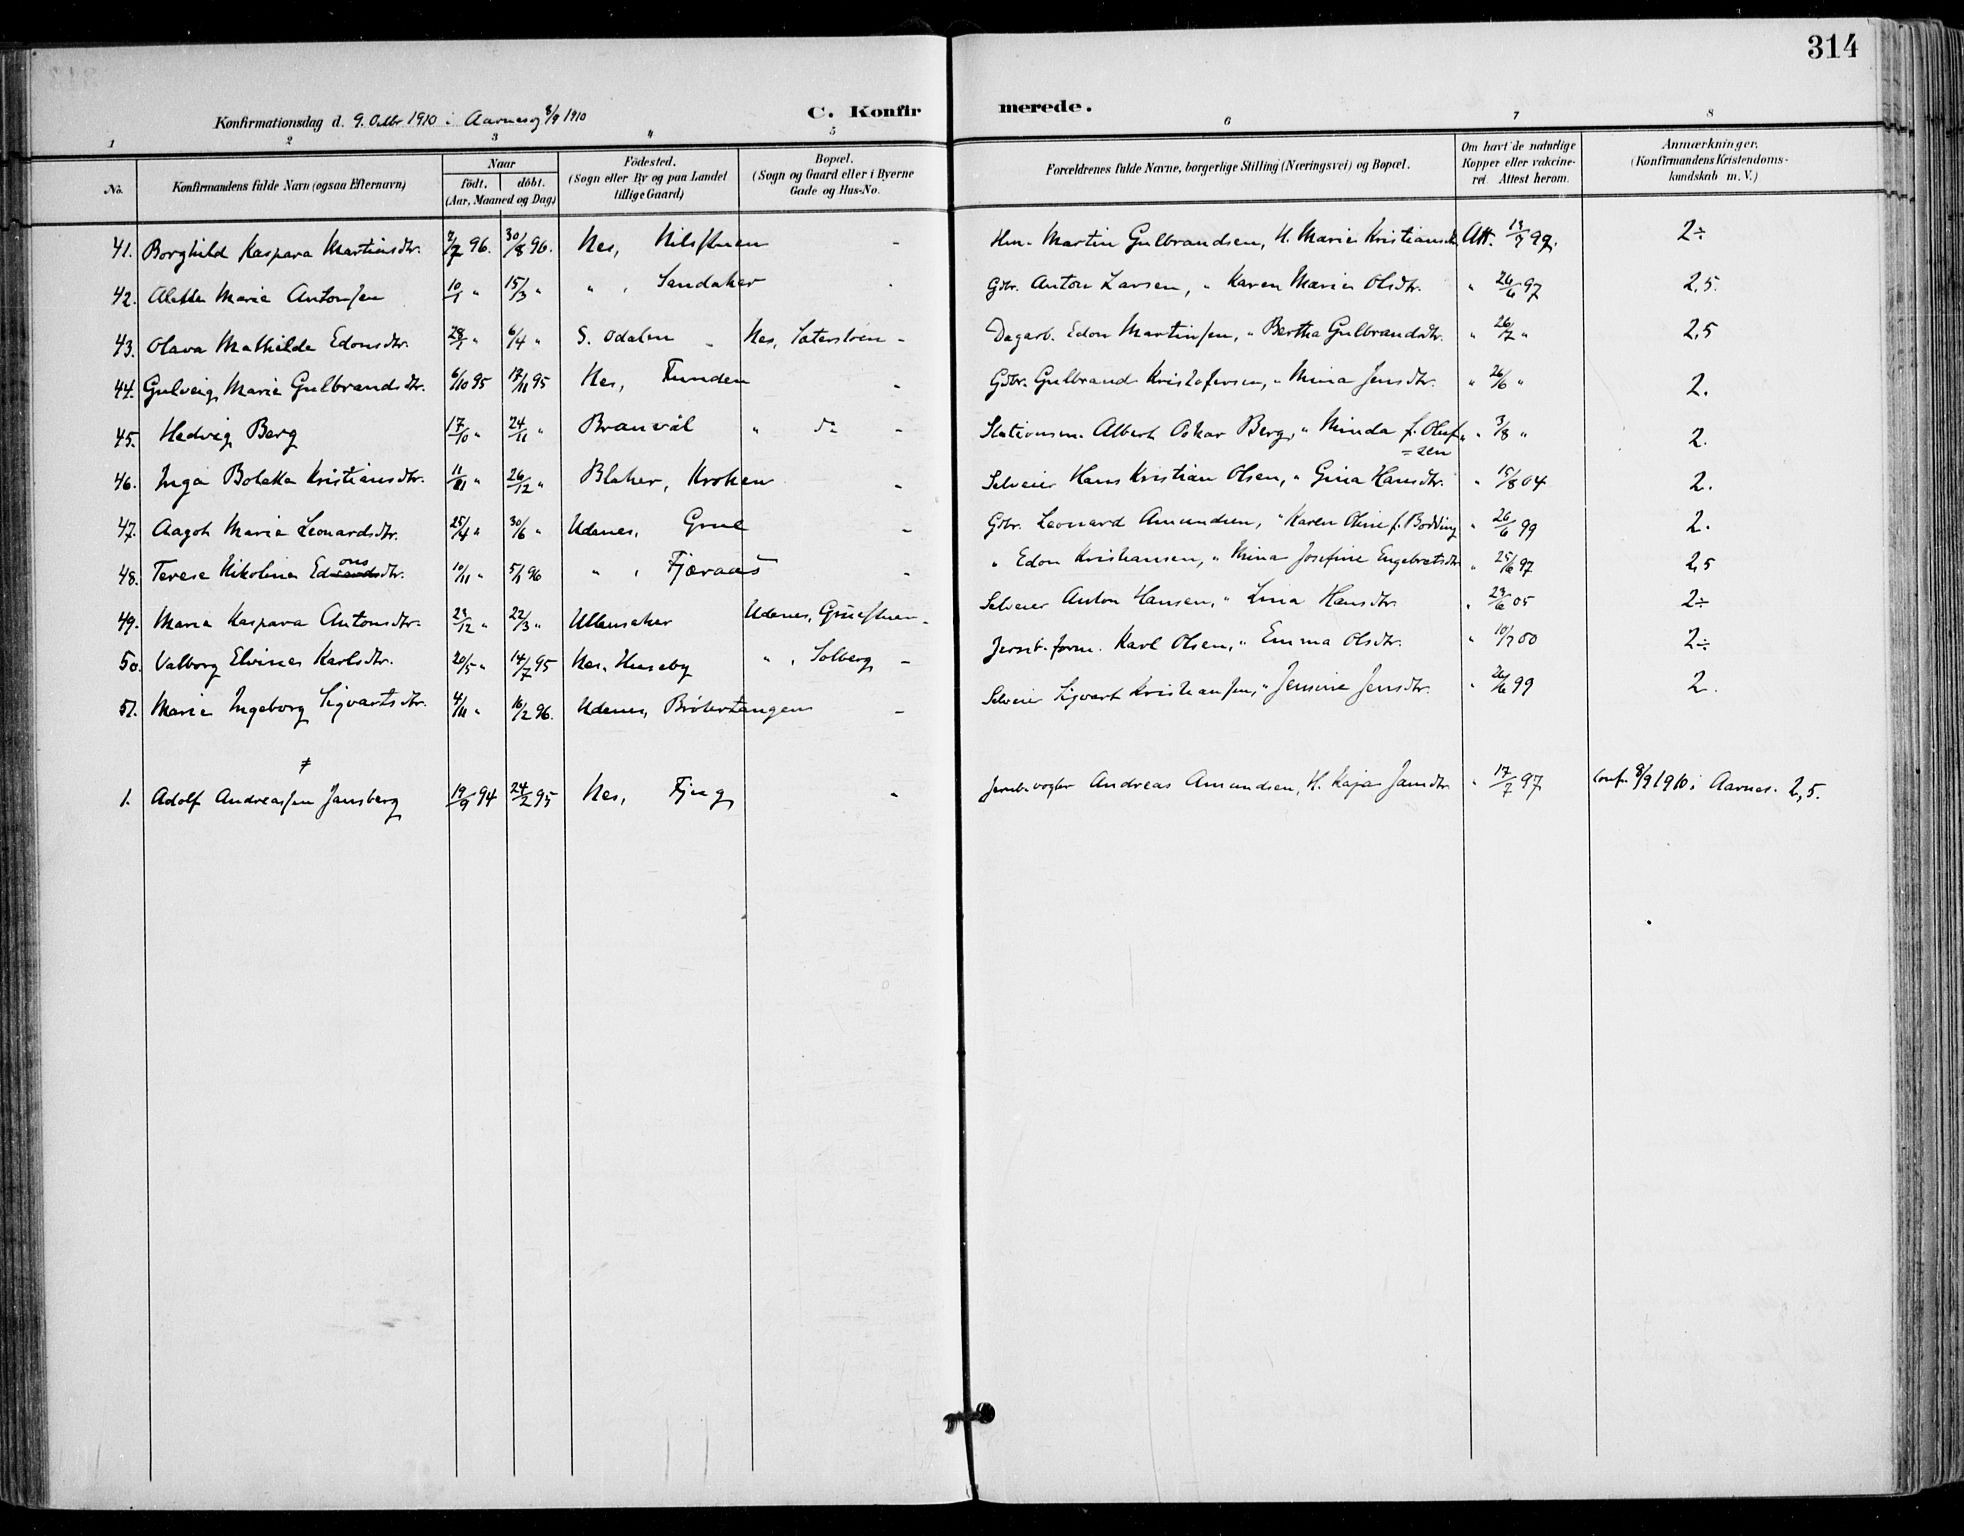 314
Konfirmationsdag d. 9. Octbr 1910 i Aarnes og 8/9 1910
C. Konfirmerede.
1 2 3 4 5 6 7 8
No.
Konfirmandens fulde Navn (ogsaa Efternavn)
Naar
født. døbt.
(Aar, Maaned og Dag)
Fødested.
(Sogn eller By og paa Landet
tillige Gaard)
Bopæl.
(Sogn og Gaard eller i Byerne
Gade og Hus-No.
Forældrenes fulde Navne, borgerlige Stilling (Næringsvei) og Bopæl.
Om havt de naturlige
Kopper eller vakcine-
ret. Attest herom.
Anmærkninger.
(Konfirmandens Kristendoms-
kundskab m. V.)
41. Borghild Kaspara Martinsdtr. 96. 30/8 96. Nes, Nilsstuen - Martin Gulbrandsen, H. Marie Kristiansd. Att. 99. 2÷
42. Alette Marie Antonsen 10/1 " 15/3 " " , Sandaker - Gbr. Anton Larsen, " Karen Marie Olsdtr. " 26/6 97 2,5.
43. Olava Mathilde Edonsdtr. 28/1 " 6/4 " S. Odalen Nes, Sæterstøen - Dagarb. Edon Martinsen, " Bertha Gulbrandsdtr. " 26/7 " 2,5
44. Gulveig Marie Gulbrandsdtr. 6/10 95 17/11 95 Nes, Funden - Gdbr. Gulbrand Kristofersen, " Mina Jensdtr. " 26/6 " 2.
45. Hedvig Berg 17/10 " 24/11 " Branvål " do - Stationsm. Albert Oskar Berg, " Minda f. Oluf=
sen " 3/8 " 2.
46. Inga Bolette Kristiansdtr. 11/11 " 26/12 " Blaker, Kroken - Selveier Hans Kristian Olsen, " Gina Hansdtr. " 15/8 04 2.
47. Aagot Marie Leonardsdtr. 25/4 " 30/6 " Udenes, Grue - Gbr. Leonard Amundsen, " Karen Oline f. Bodding " 26/6 99 2.
48. Terese Nikoline Edonsdtr. 10/11 " 5/1 96 " , Fjæraas - " Edon Kristiansen, " Mina Josefine Engebretsdtr " 25/6 97 2,5
49. Marie Kaspara Antonsdtr. 23/12 " 22/3 " Ullensaker Udenes, Gruestuen - Selveier Anton Hansen, " Lina Hansdtr. " 23/6 05 2÷
50. Valborg Elvine Karlsdtr. 20/5 " 14/7 95 Nes, Huseby " , Solberg - Jernb.form. Karl Olsen, " Emma Olsdtr. " 10/7 00 2÷
51. Marie Ingeborg Sigvartsdtr. 4/11 " 16/2 96. Udenes, Brøkertangen - Selveier Sigvart Kristiansen, " Jensine Jensdtr. " 26/6 99 2.
≠
1. Adolf Andreassen Jansberg 19/9 94 24/2 95 Nes, Fjug - Jernb.vogter Andreas Amundsen, H. Kaja Jansdtr. " 17/7 97 Conf. 8/9 1910 i Aarnes. 2,5.